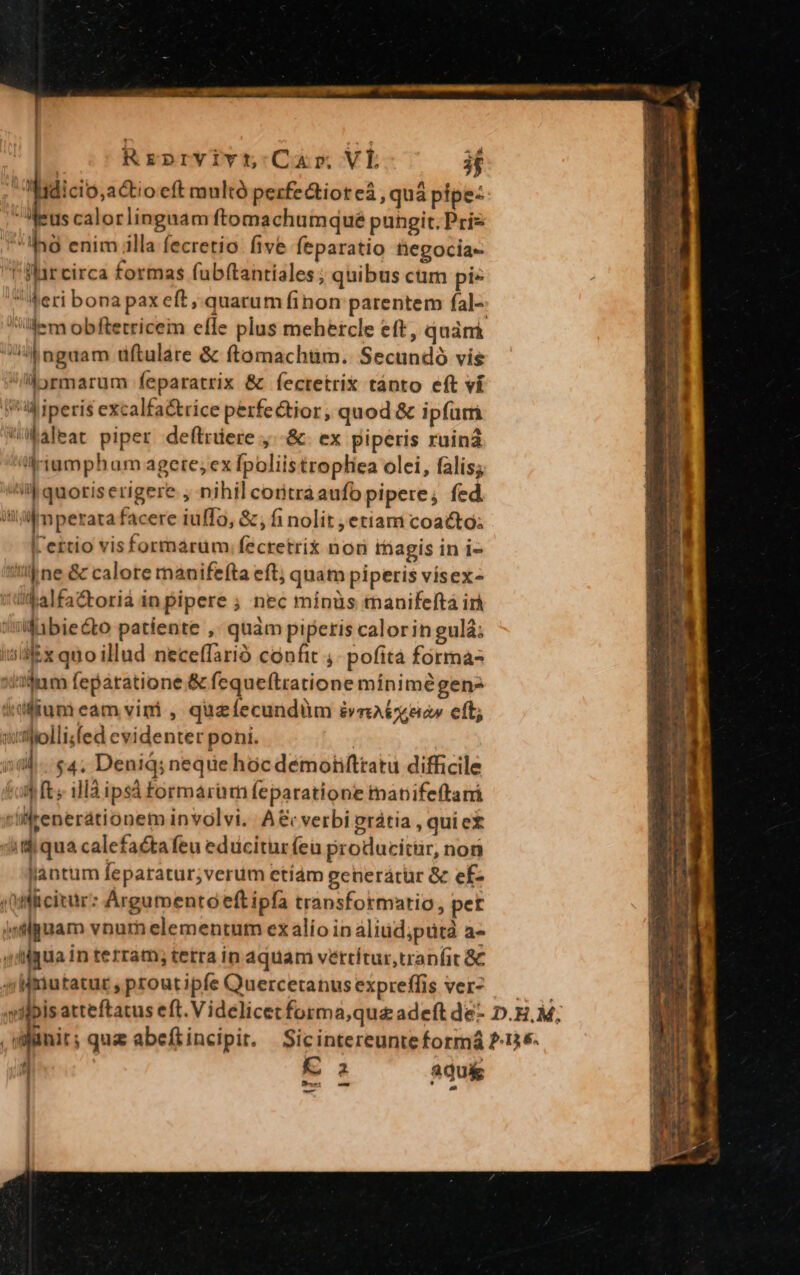 REDIVIVI, CAP. VI. 35
iudicio, actio est multò perfectior eâ, quâ pipe-
calor linguam stomachumque pungit. Pri-
enim illa secretio sive separatio negocia-
circa formas substantiales; quibus cum pi-
bona pax est, quarum si non parentem sal-
obstetricem esse plus mehercle est, quàm
ustulare & stomachum. Secundò vis
formarum separatrix & secretrix tanto est vi
piperis excalfactrice perfectior, quod & ipsum
valeat piper destruere, & ex piperis ruinâ
triumphum agere, ex spoliis trophea olei, salis,
quoris erigere, nihil contra auso pipere, sed
imperata facere iusso, &, si nolit, etiam coacto.
Tertio vis formarum secretrix non magis in i-
gne & calore manifesta est, quam piperis vis ex-
calfactoria in pipere; nec minùs manifesta in
subiecto patiente, quàm piperis calor in gulâ.
Ex quo illud necessariò confit, posita forma-
rum separatione & sequestratione minimè gen-
tium eam vim, quæ secundùm ἐντελέχειαν est,
tolli, sed evidenter poni.
54. Deniq; neque hoc demonstratu difficile
est, illâ ipsâ formarum separatione manifestam
generationem involvi. Aër verbi gratia, qui ex
aqua calefacta seu educitur seu producitur, non
tantum separatur, verum etiam generatur & ef-
ficitur: Argumento est ipsa transformatio, per
quam vnum elementum ex alio in aliud, putà a-
qua in terram, terra in aquam vertitur, transit &
mutatur, prout ipse Quercetanus expressis ver-
bis attestatus est. Videlicet forma, quæ adest de- D.H.M.
sinit; quæ abest incipit. Sic intereunte formâ p. 136.
E 2 aquæ